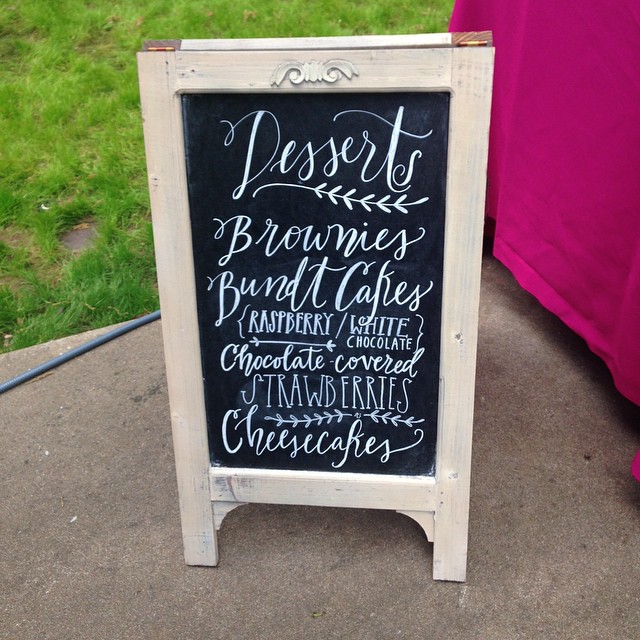 Desserts
Brownies
Bundt Cakes
{RASPBERRY / WHITE CHOCOLATE}
Chocolate-covered
STRAWBERRIES
Cheesecakes